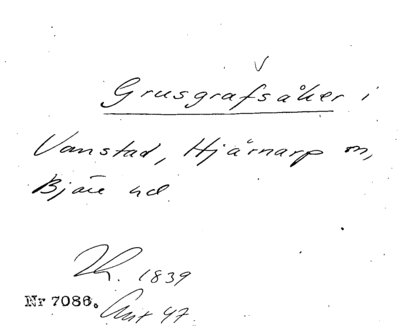 Grusgrafsåker i
Vanstad, Hjärnarp sn,
Bjäre hd
1839
Nr 7086. Akt 47